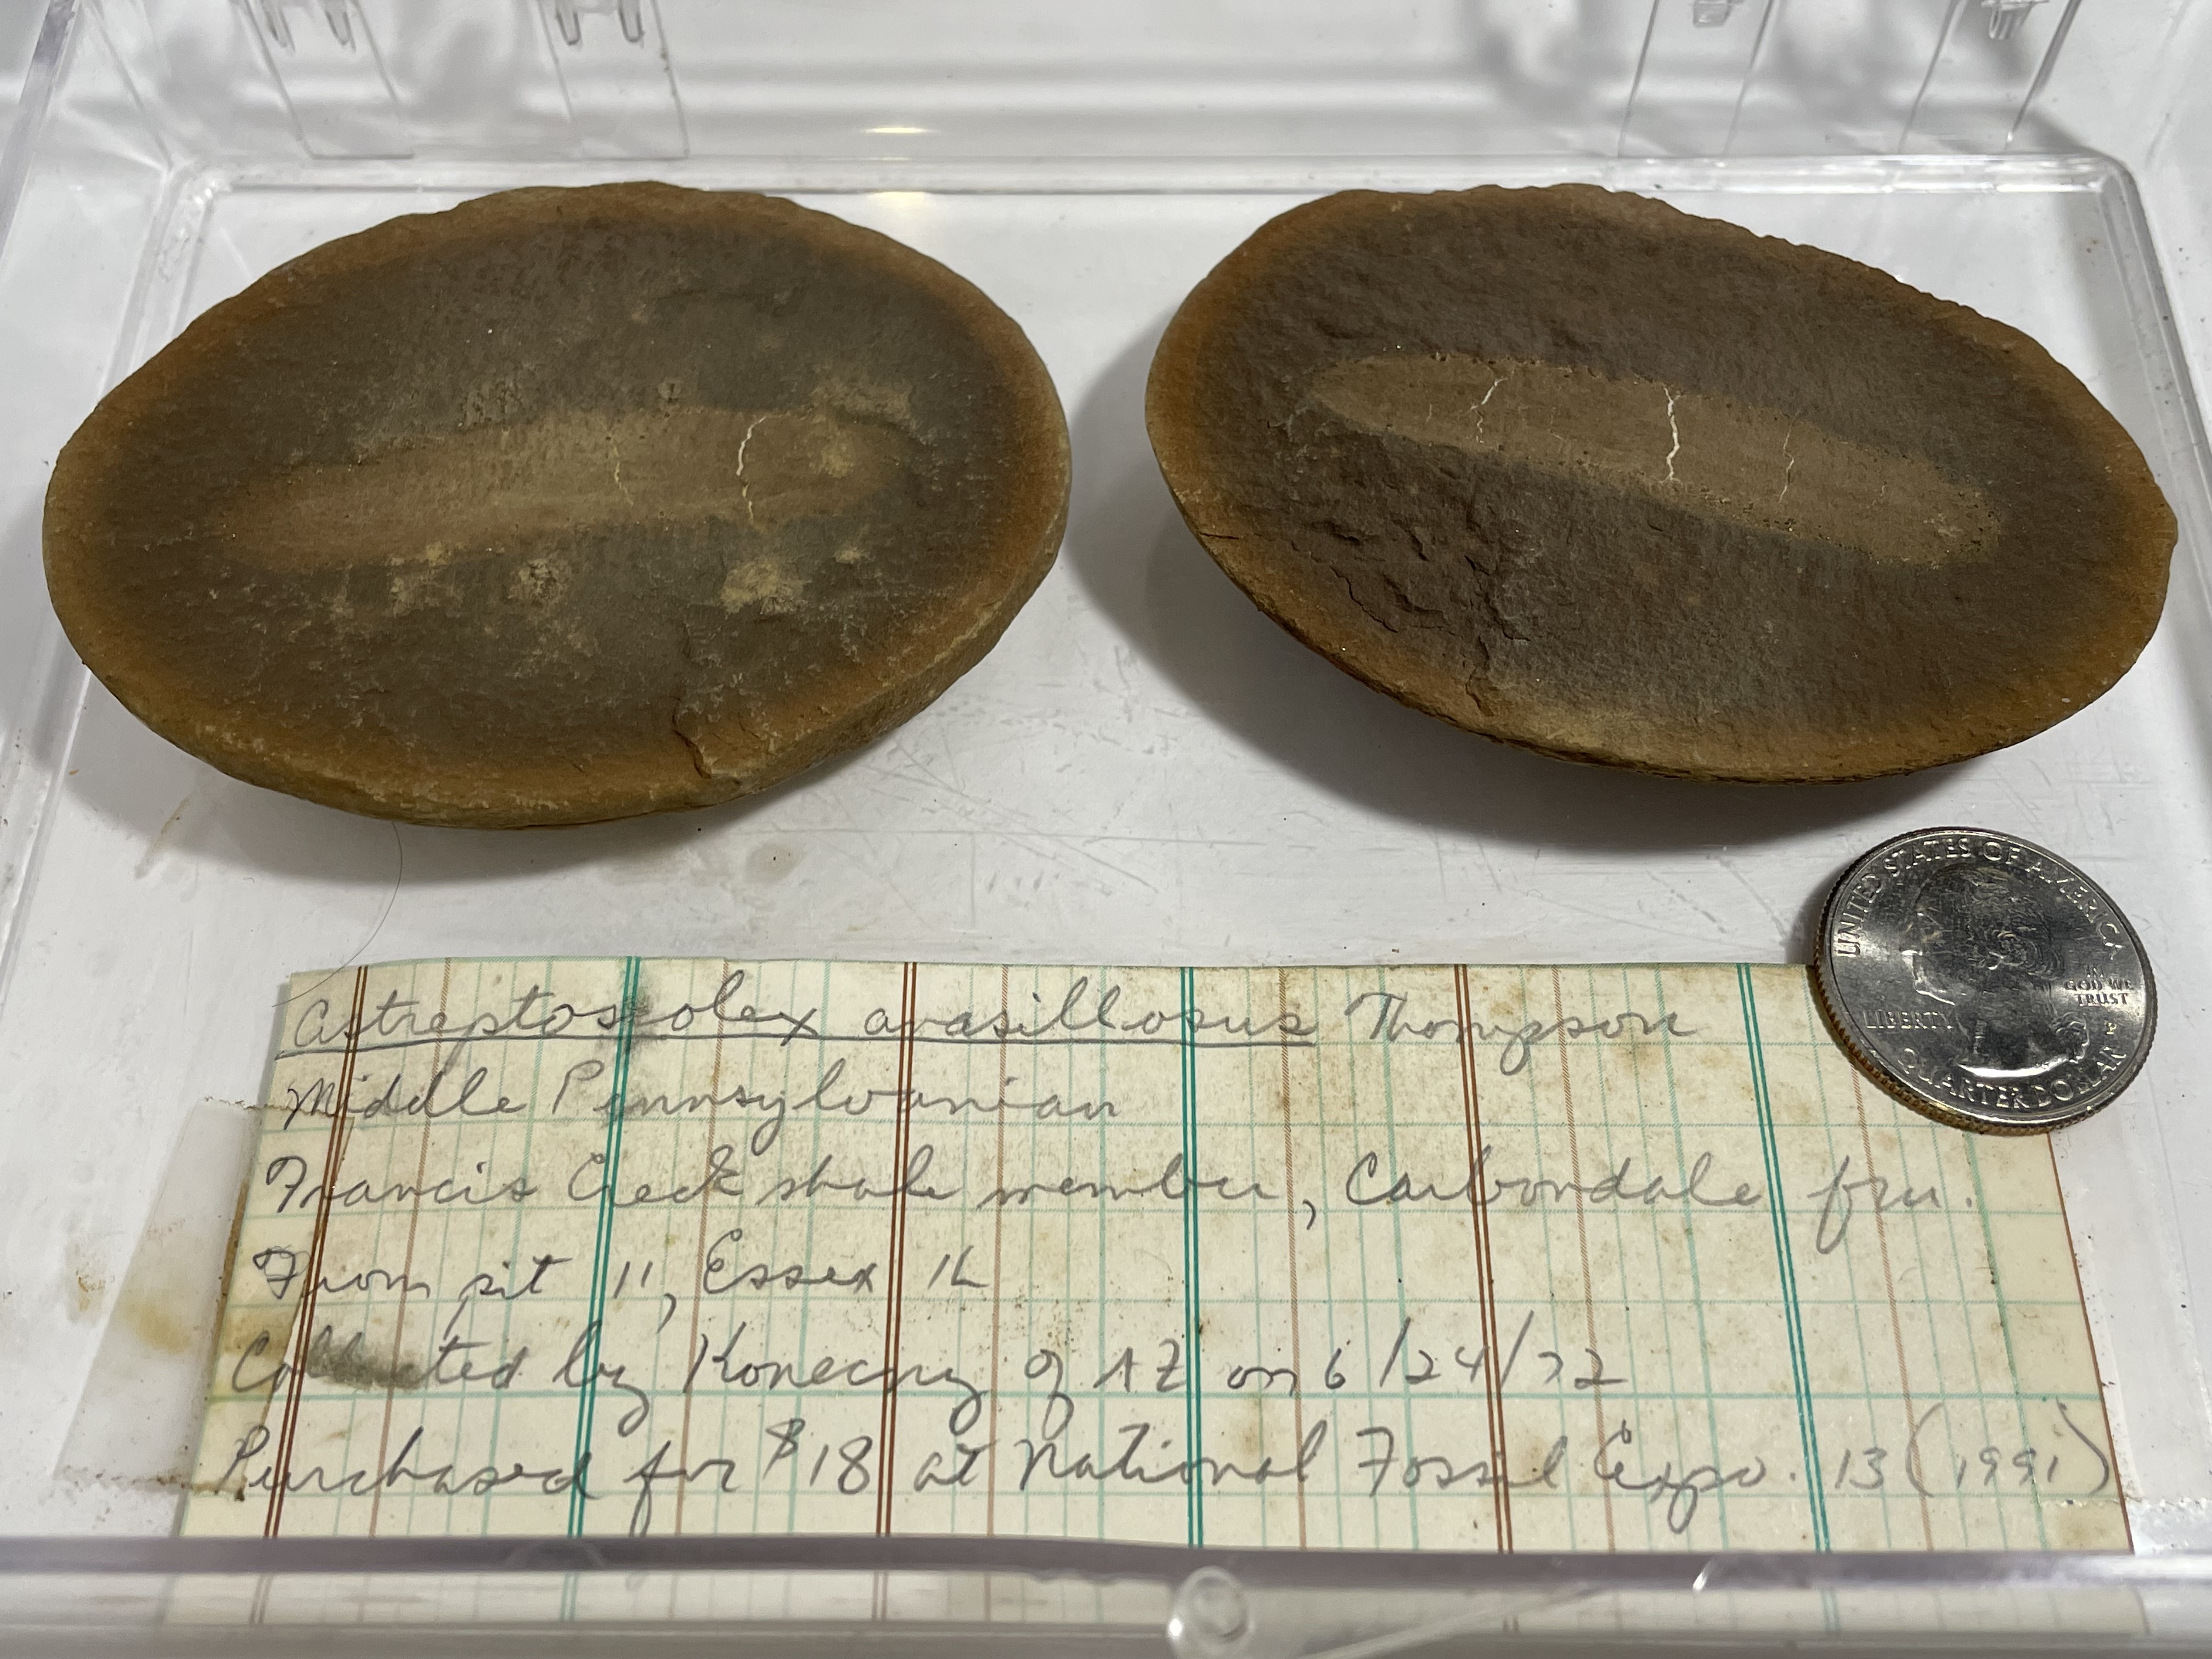 UNITED STATES OF AMERICA
IN
GOD WE
TRUST
LIBERTY
P
QUARTER DOLLAR
Astreptoscolex anasillosus Thompson
Middle Pennsylvanian
Francis Creek shale member, Carbondale frm.
From pit 11, Essex IL
Collected by Konecny of AZ on 6/24/72
Purchased for $18 at National Fossil Expo. 13 (1991)